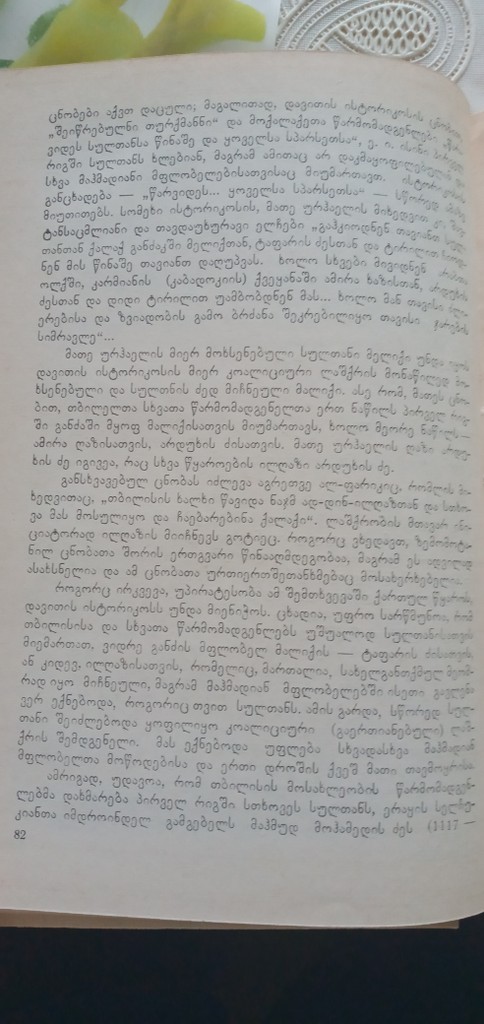 ცნობები აქვთ დაცული; მაგალითად, დავითის ისტორიკოსის ცნობით,
„შეიწრებულნი თურქმანნი“ და მოქალაქეთა წარმომადგენლები
ვიდეს სულთანსა წინაშე და ყოველსა სპარსეთსა“, ე. ი. ისინი პირველ
რიგში სულთანს ხლებიან, მაგრამ ამითაც არ დაკმაყოფილებულან და
სხვა მაჰმადიანი მფლობელებისათვისაც მიუმართავთ. ისტორიკოსის
განცხადება — „წარვიდეს... ყოველსა სპარსეთსა“ — სწორედ ამაზე
მიუთითებს. სომეხი ისტორიკოსის, მათე ურჰაელის მიხედვით კი
ტანსაცმლიანი და თავდაუხურავი ელჩები „გაჰკიოდნენ თავიანთ
თანთან ქალაქ განძაკში მელიქთან, ტაფარის ძესთან და ტირილით
ნენ მის წინაშე თავიანთ დაღუპვას. ხოლო სხვები მივიდნენ არაბთა
ოლქში, კარმიანის (კაბადოკიის) ქვეყანაში ამირა ხაზისთან, არდუხის
ძესთან და დიდი ტირილით უამბობდნენ მას... ხოლო მან თავისი
ერებისა და ზვიადობის გამო ბრძანა შეკრებილიყო თავისი ჯარების
სიმრავლე“...
მათე ურჰაელის მიერ მოხსენებული სულთანი მელიქი უნდა იყოს
დავითის ისტორიკოსის მიერ კოალიციური ლაშქრის მონაწილედ მო-
ხსენებული და სულთნის ძედ მიჩნეული მალიქი. ასე რომ, მათეს ცნო-
ბით, თბილელთა სხვათა წარმომადგენელთა ერთ ნაწილს პირველ რიგ-
ში განძაში მყოფ მალიქისათვის მიუმართავს, ხოლო მეორე ნაწილს —
ამირა ღაზისათვის, არდუხის ძისათვის. მათე ურჰაელის ღაზი არდუ-
ხის ძე იგივეა, რაც სხვა წყაროების ილღაზი არდუხის ძე.
განსხვავებულ ცნობას იძლევა აგრეთვე ალ-ფარიკიც, რომლის მი-
ხედვითაც, „თბილისის ხალხი წავიდა ნაჯმ ად-დინ-ილღაზთან და სთხო-
ვა მას მოსულიყო და ჩაებარებინა ქალაქი“. ლაშქრობის მთავარ ინი-
ციატორად ილღაზის მიიჩნევს გოტიეც. როგორც ვხედავთ, ზემომოტა-
ნილ ცნობათა შორის ერთგვარი წინააღმდეგობაა, მაგრამ ეს ადვილად
ასახსნელია და ამ ცნობათა ურთიერთშეთანხმებაც მოსახერხებელია.
როგორც ირკვევა, უპირატესობა ამ შემთხვევაში ქართულ წყაროს,
დავითის ისტორიკოსს უნდა მიენიჭოს. ცხადია, უფრო სარწმუნოა, რომ
თბილისისა და სხვათა წარმომადგენლებს უშუალოდ სულთანისათვის
მიემართათ, ვიდრე განძის მფლობელ მალიქის — ტაფარის ძისათვის,
ან კიდევ, ილღაზისათვის, რომელიც, მართალია, სახელგანთქმულ მეომ-
რად იყო მიჩნეული, მაგრამ მაჰმადიან მფლობელებში ისეთი გავლენა
ვერ ექნებოდა, როგორიც თვით სულთანს. ამის გარდა, სწორედ სულ-
თანი შეიძლებოდა ყოფილიყო კოალიციური (გაერთიანებული) ლაშ-
ქრის შემდგენელი. მას ექნებოდა უფლება სხვადასხვა მაჰმადიან
მფლობელთა მოწოდებისა და ერთი დროშის ქვეშ მათი თავმოყრისა.
ამრიგად, უდავოა, რომ თბილისის მოსახლეობის წარმომადგენ-
ლებმა დახმარება პირველ რიგში სთხოვეს სულთანს, ერაყის სელჩუ-
კიანთა იმდროინდელ გამგებელს მაჰმუდ მოჰამედის ძეს (1117 —
82